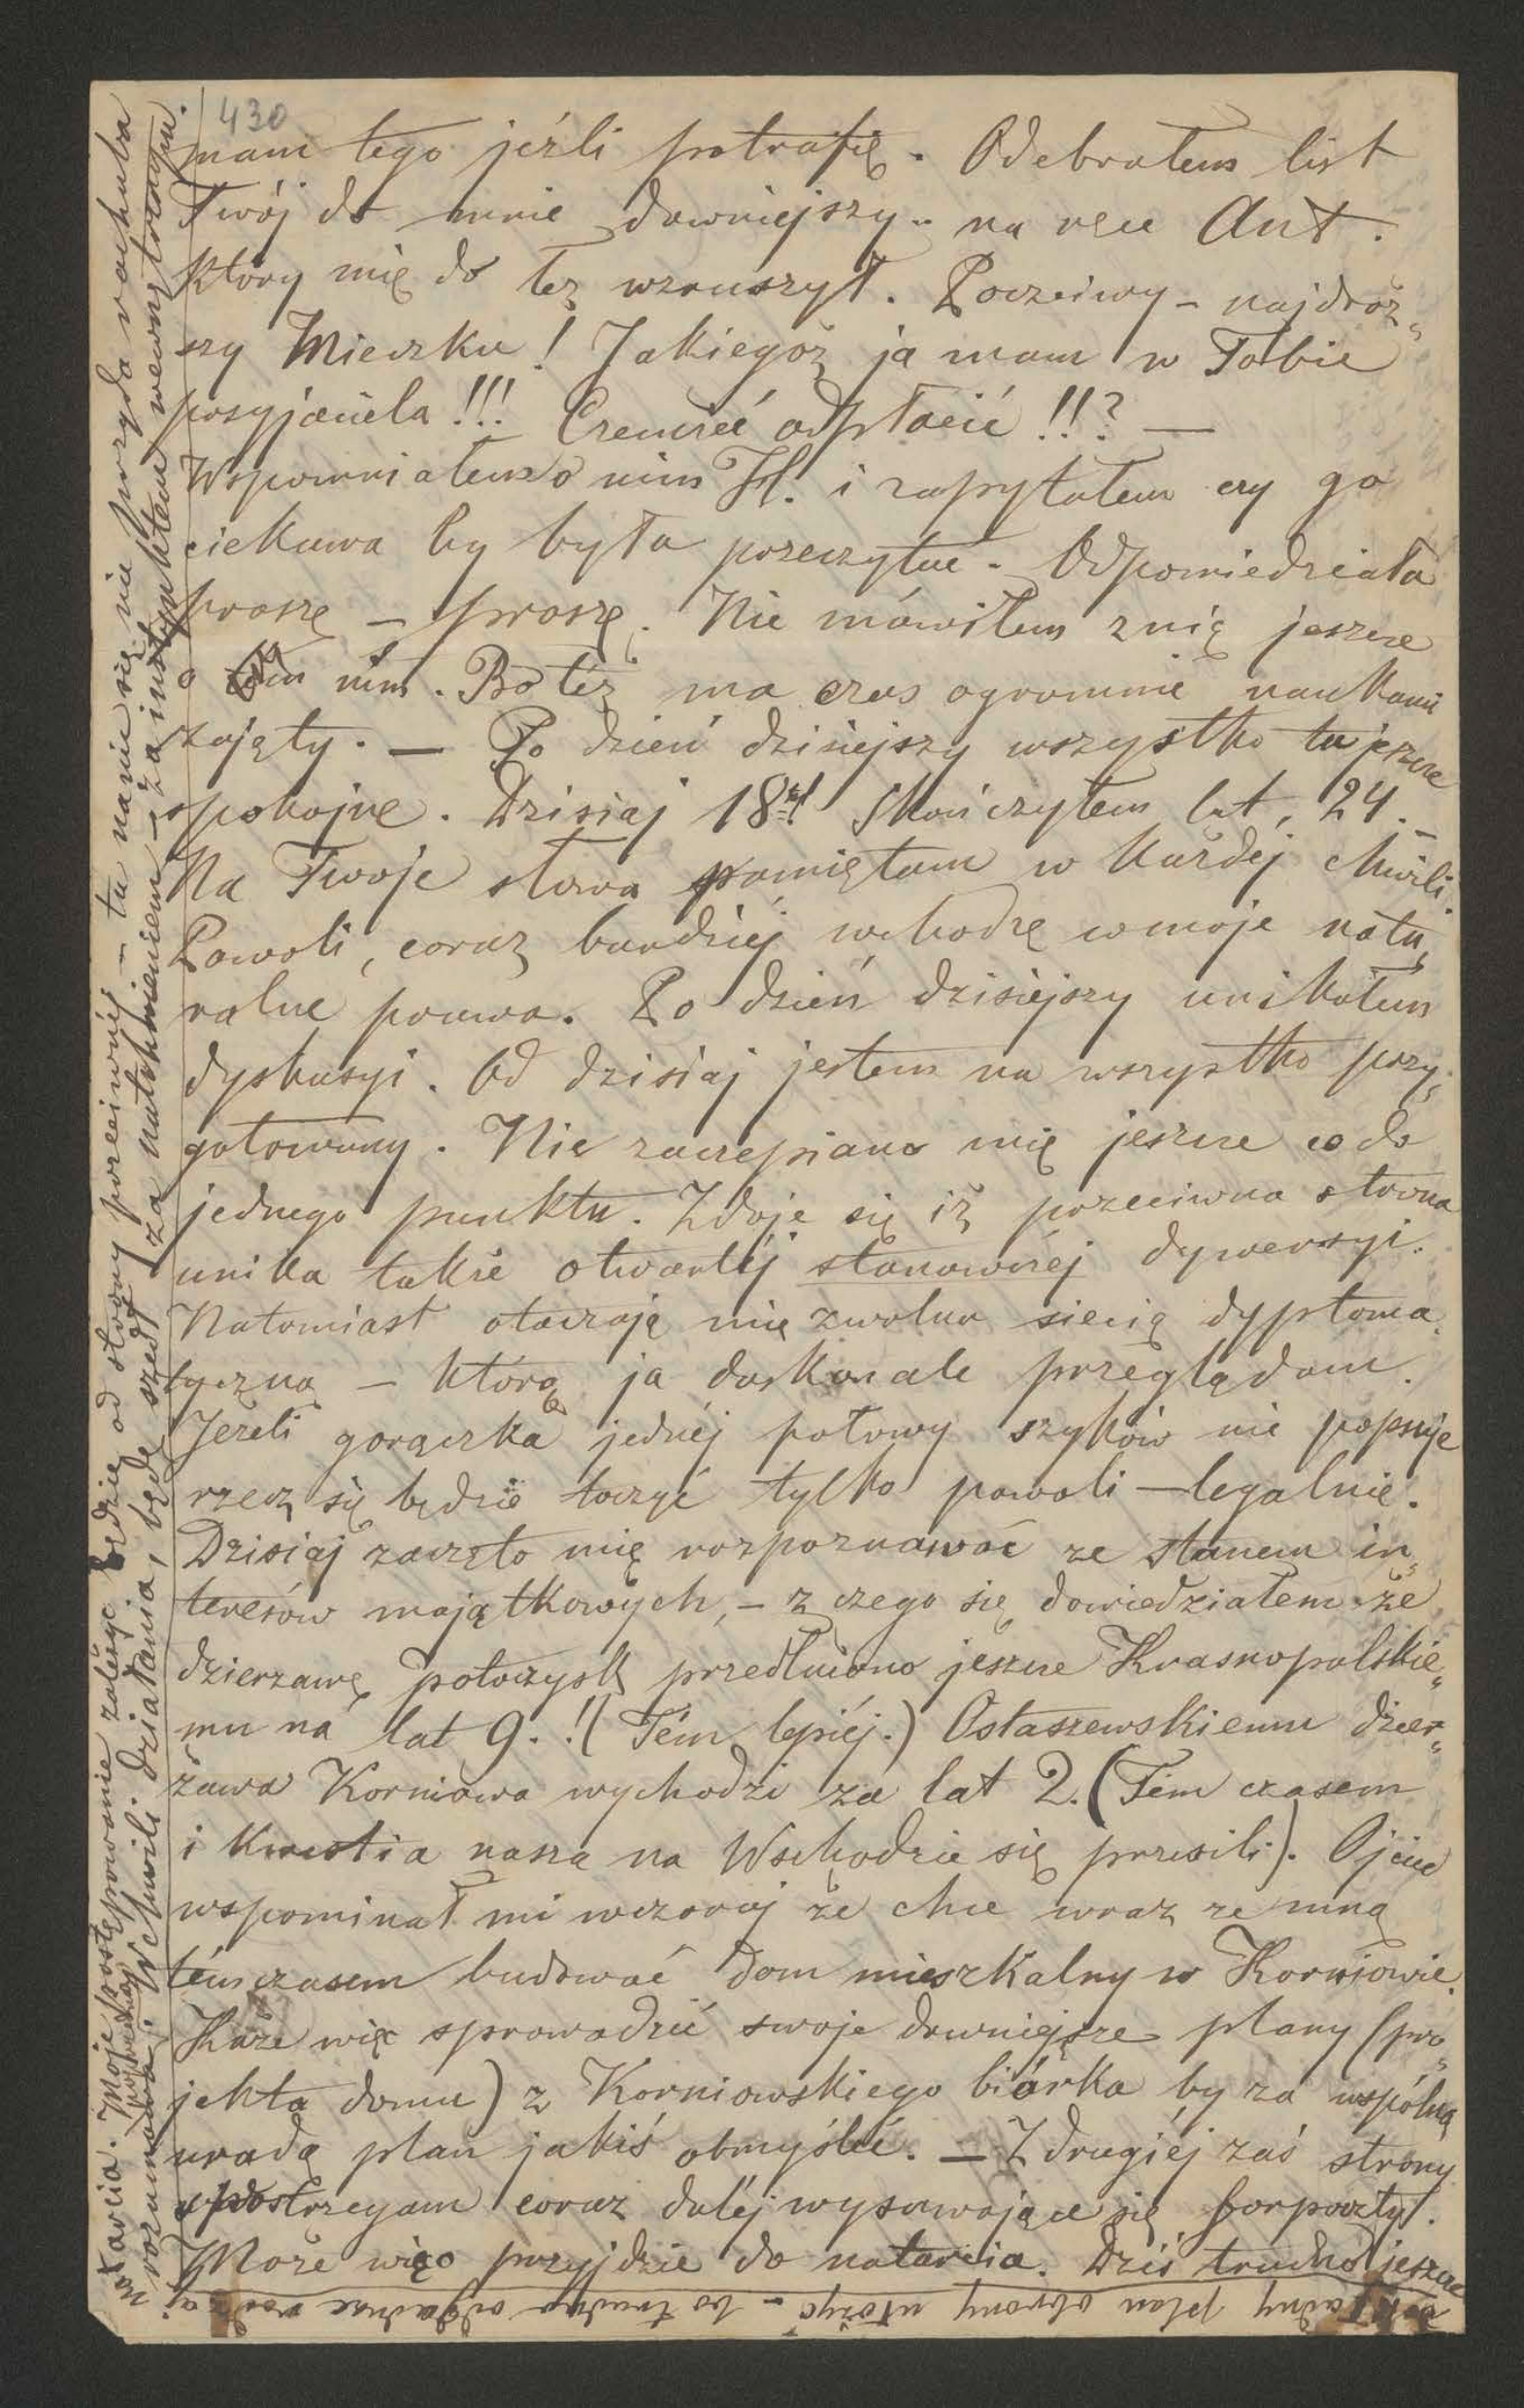 430
mam tego jeźli potrafię. Odebrałem list
Twój do mnie dawniejszy - na ręce Ant.
który mię do łez wzruszył. Poczciwy - najdroż„
szy Mieczku! Jakiegoż ja mam w Tobie
przyjaciela!!! Czemżeć odpłacić!!? —
Wspomniałem o nim H. i zapytałem czy go
ciekawa by była przeczytać. Odpowiedziała
proszę — proszę. Nie mówiłem z nią jeszcze
o nim. Bo też ma czas ogromnie naukami
zajęty. — Po dzień dzisiejszy wszystko tu jeszcze
spokojne. Dzisiaj 18. skończyłem lat, 24. —
Na Twoje słowa pamiętam w każdéj chwili.
Powoli, coraz bardziej wchodzę w moje natu„
ralne prawa. Po dzień dzisiejszy unikałem
dyskusyi. Od dzisiaj jestem na wszystko przy„
gotowany. Nie zaczepiano mię jeszcze co do
jednego punktu. Zdaje się iż przeciwna strona
unika także otwartéj stanowczej dywersyi.
Natomiast otaczają mię zwolna siecią dyploma„
tyczną — którą ja doskonale przeglądam.
Jeżeli gorączka jednéj połowy szyków nie popsuje
rzecz się będzie toczyć tylko powoli — legalnie.
Dzisiaj zaczęto mię rozpoznawać ze stanem in„
teresów majątkowych, — z czego się dowiedziałem że
dzierzawę potoczysk przedłużono jeszcze Krasnopolskie„
mu na lat 9.! (Tém lepiéj.) Ostaszewskiemu dzier„
żawa Korniowa wychodzi za lat 2. (Tém czasem
i kwestia nasza na Wschodzie się przesili). Ojciec
wspominał mi wczoraj że chce wraz ze mną
témczasem budować dom mieszkalny w Korniowie.
Każe więc sprowadzić swoje dawniejsze plany (pro„
jekta domu) z Korniowskiego biórka by za wspólną
uradą plan jakiś obmyśleć. — Z drugiéj zaś strony
spostrzegam coraz daléj wysuwające się forpoczty.
Może więc przyjdzie do natarcia. Dziś trudno jeszcze
dokładny plan obrony ułożyć - bo trudno odgadnąć rodzaj
natarcia. Moje postępowanie zależeć będzie od strony przeciwnéj — tu na nic się nie przyda rachuba
rozumowa. W chwili działania, będę szedł za natchnieniem — za instynktem wewnętrznym.